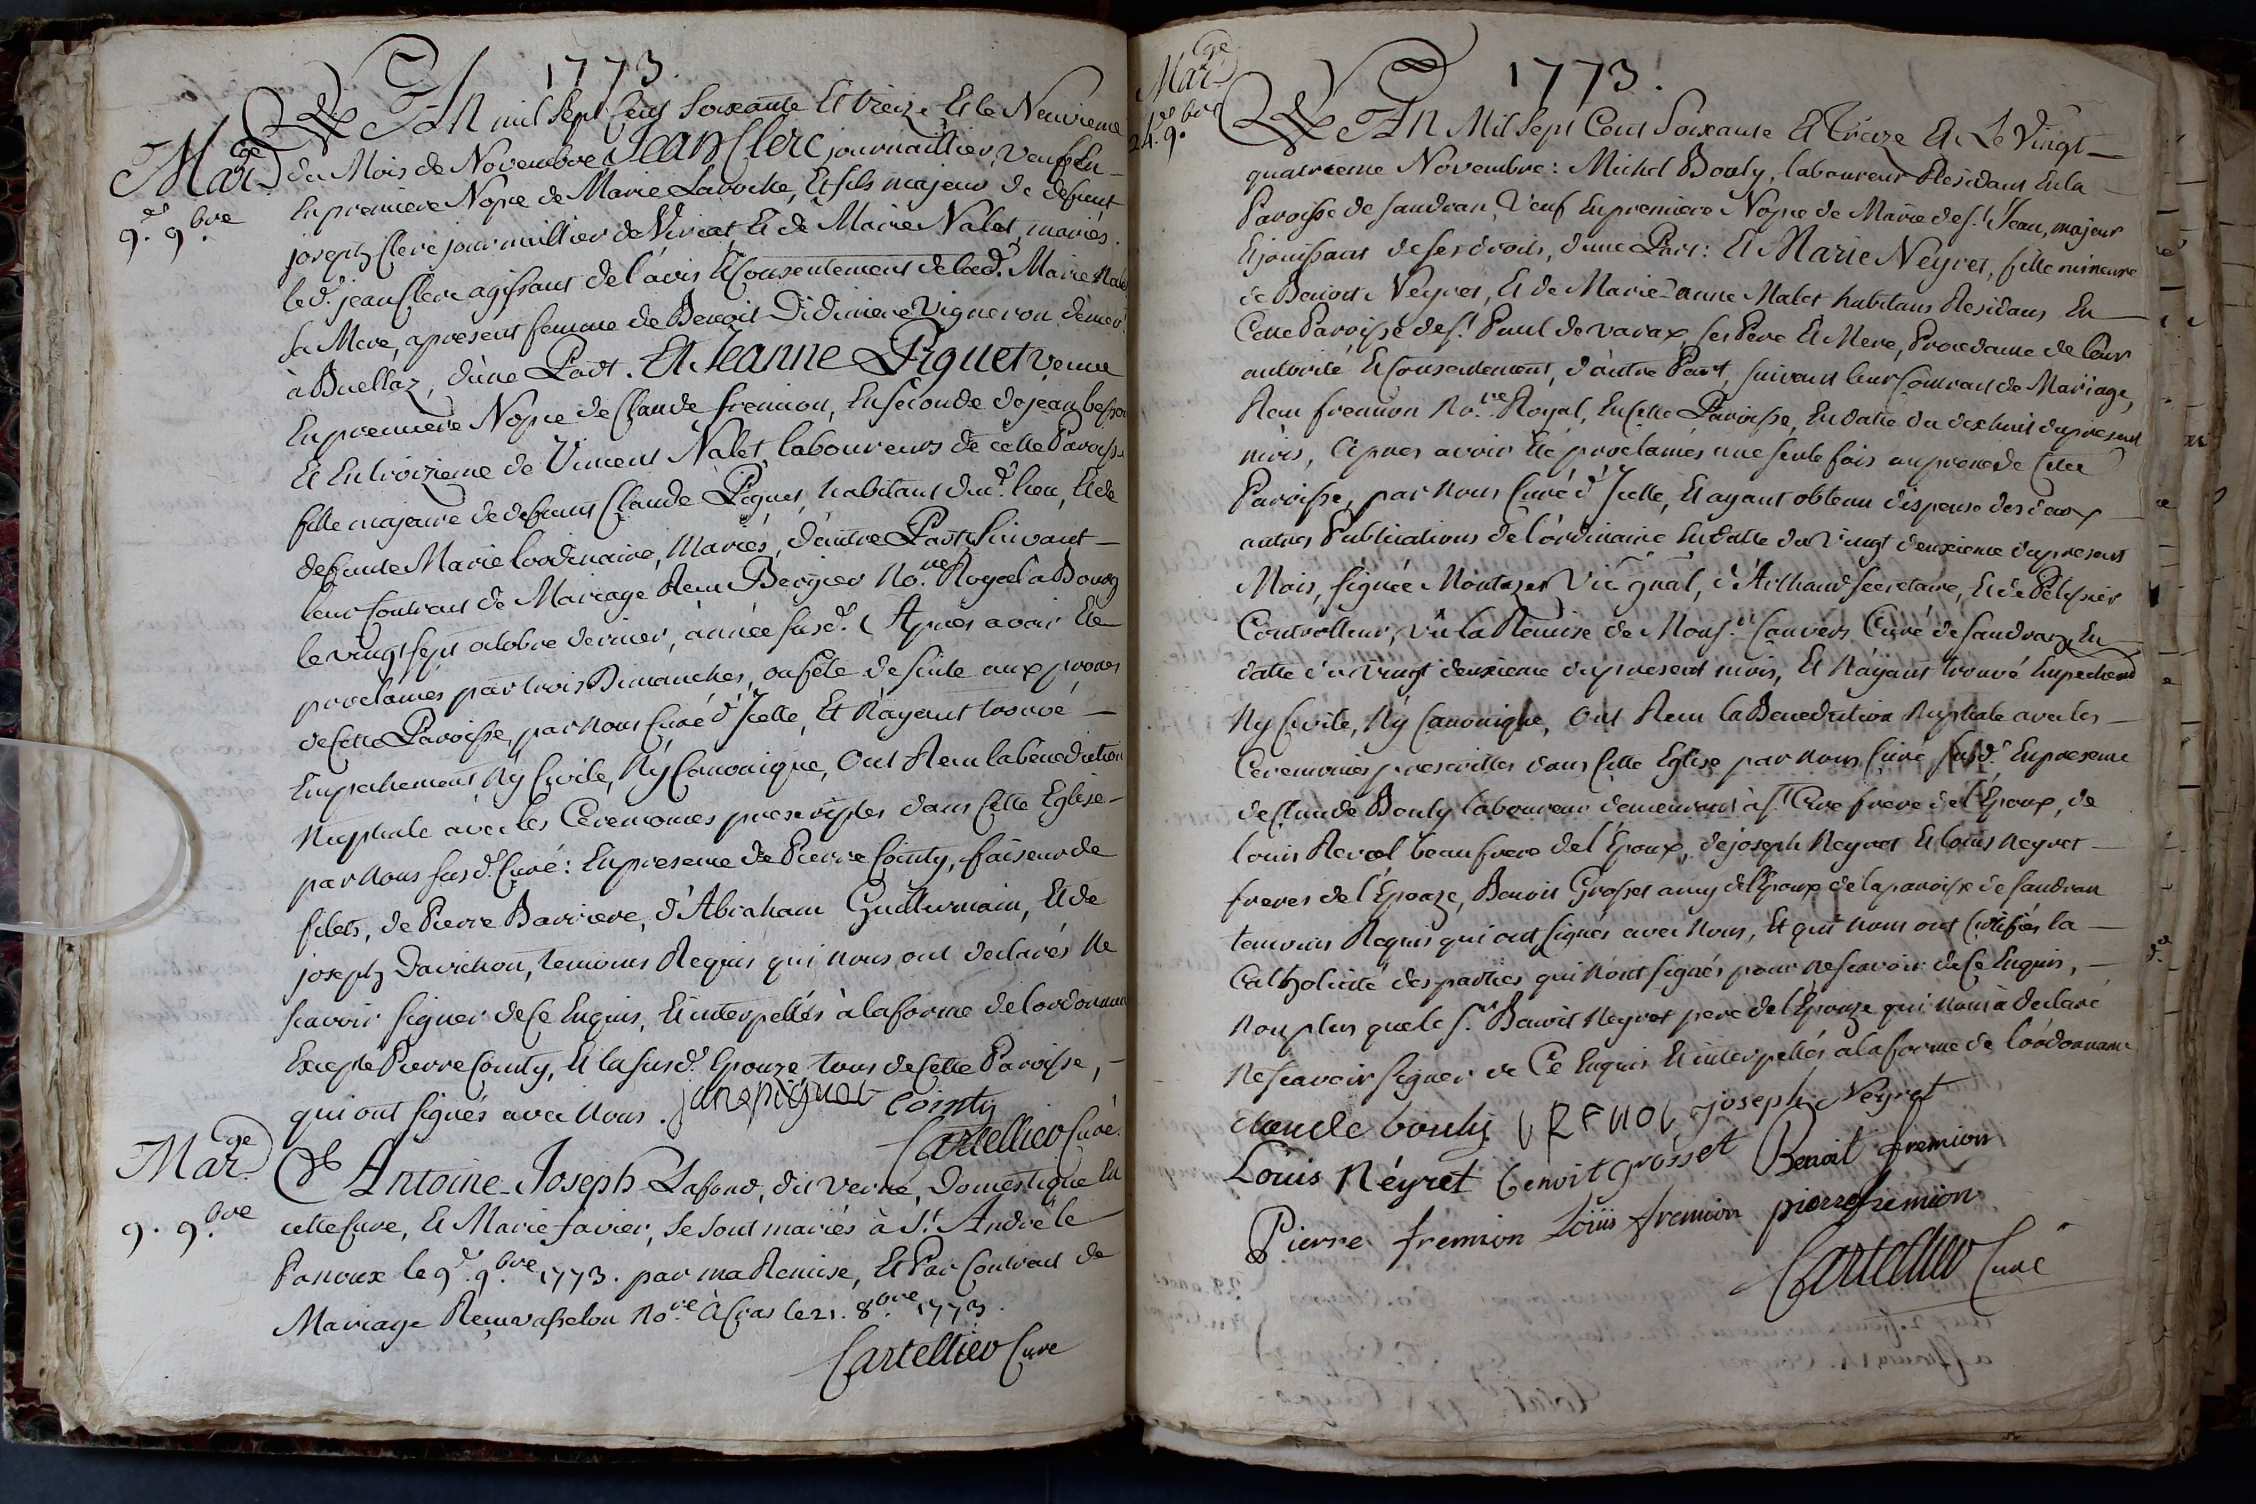 1773.
L'An mil Sept Cens Soixante Et treize, Et le Neuvieme
Mar.ge du Mois de Novembre Jean Clerc journaillier, veuf En
9.e 9.bre En premiere Nopce de Marie Laroche, Et fils majeur de defunt
joseph Clerc journaillier de Viriat, Et de Marie Nalet, mariés.
le d.t jean Clerc agissant de l'avis Et Consentement de lad.e Marie Nalet
sa Mere, apresent femme de Benoit Didimiere Vigneron demeu.t
à Buellaz, d'une Part. Et Jeanne Piquet veuve
En premiere Nopce de Claude fremion, En seconde de jean besson
Et En troizieme de Vincent Nalet, laboureurs de cette Paroisse
fille majeure de defunt Claude Piquet, habitant dud.t lieu, Et de
defunte Marie lordinaire, Mariés, d'autre Part, Suivant
leur Contrat de Mariage Reçu Bergier No.re Royal à Bourg
le vingt sept octobre dernier, année susd.e. Après avoir Eté
proclamés par trois Dimanches, ou fête de suite aux prones
de Cette Paroisse, par Nous Curé d'Icelle, Et N'ayant trouvé
Empechement Ny Civile, Ny Canonique, Ont Recu la benediction
Nuptiale avec les Ceremonies prescriptes dans Cette Eglise
par Nous susd.t Curé: En presence de Pierre Cointy, faiseur de
filets, de Pierre Barriere, d'Abraham Guillermain, Et de
joseph Davichon, temoins Requis qui Nous ont declarés Ne
scavoir signer de Ce Enquis, Et interpellés à la forme de lordonnance
Excepté Pierre Cointy, Et la susd.e Epouze tous de Cette Paroisse,
qui ont signés avec Nous. jane piquet Cointy
Cartellier Curé.
Mar.ge Antoine-Joseph Lafond, dit verné, Domestique En
9. 9.bre cette Cure, Et Marie favier, se sont mariés à S.t André le
Panoux le 9.e 9.bre 1773. par ma Remise, Et Par Contrat de
Mariage Reçu vasselon No.re à Cras le 21. 8.bre 1773.
Cartellier Curé
Mar.ge
24.e 9.bre
1773.
L'An Mil Sept Cent Soixante Et treize Et Le Vingt
quatrieme Novembre: Michel Bouly, laboureur Residant En la
Paroisse de Sandran, Veuf En premiere Nopce de Marie de S.t Jean, majeur
Et jouissant de ses droits, d'une Part: Et Marie Neyret, fille mineure
de Benoit Neyret, Et de Marie-anne Malet habitans Residans En
Cette Paroisse de S.t Paul de varax, ses Pere Et Mere, Procedante de leur
autorité Et Consentement, d'autre Part, suivant leur Contrat de Mariage,
Recu fremion No.re Royal, En Cette Paroisse, En datte du dixhuit du present
mois, Après avoir Eté proclamés une seule fois au prone de Cette
Paroisse, par Nous Curé d'Icelle, Et ayant obtenu dispense des deux
autres Publications de l'ordinaire En datte du Vingt deuxieme du present
Mois, signée Montazet Vic gnal, d'Arthaud secretaire, Et de Pelissier
Controlleur, Vû la Remise de Mons.r Curé de Sandran, En
datte du vingt deuxieme du present mois, Et N'ayant trouvé Empechement
Ny Civile, Ny Canonique, Ont Recu la Benediction Nuptiale avec les
Ceremonies prescrittes dans Cette Eglise par Nous Curé susd.t En presence
de Claude Bouly laboureur demeurant à S.t Cire frere de l'Epoux, de
louis Revol beaufrere de l'Epoux, de joseph Neyret Et louis Neyret
freres de l'Epouze, Benoit Grosset amy de l'Epoux de la paroisse de Sandran
temoins Requis qui ont signés avec Nous, Et qui Nous ont Certifiés la
Catholicité des parties qui N'ont signés pour Ne scavoir de Ce Enquis,
Non plus que le s.r Benoit Neyret pere de l'Epouze qui Nous à declaré
Ne scavoir signer de Ce Enquis Et interpellés à la forme de lordonnance
claude bouly joseph Neyret
Louis Néyret benoit grosset Benoit fremion
Pierre fremion Loüis fremion pierre fremion
Cartellier Curé